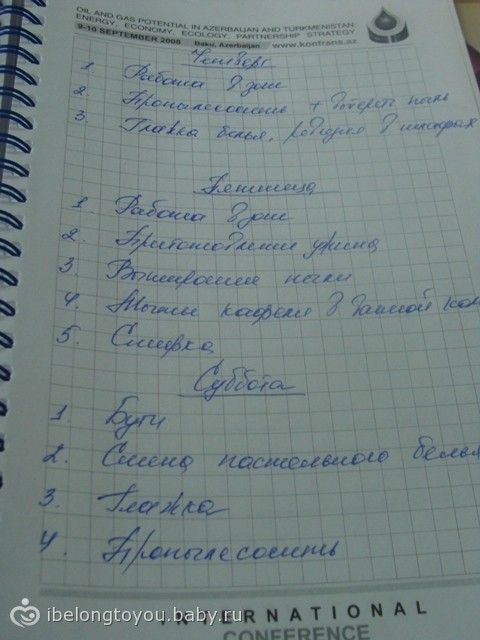 OIL AND GAS POTENTIAL IN AZERBAIJAN AND TURKMENISTAN:
ENERGY, ECONOMY, ECOLOGY, PARTNERSHIP STRATEGY
9-10 SEPTEMBER 2008 Baku, Azerbaijan www.kontrans.az
Четверг
1. Работа
2. Пропылесосить + вытереть пыль
3. Глажка белья, в шкафах
Пятница
1. Работа
2. Приготовление ужина
3. пыли
4. Мытьё кафеля в ванной ком
5. Стирка
Суббота
1.
2. Смена постельного белья
3. Глажка
4. Пропылесосить
INTERNATIONAL
CONFERENCE
ibelongtoyou.baby.ru